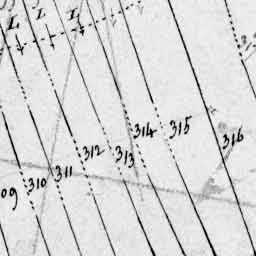 I I I
09 310 311 312 313 314 315 316